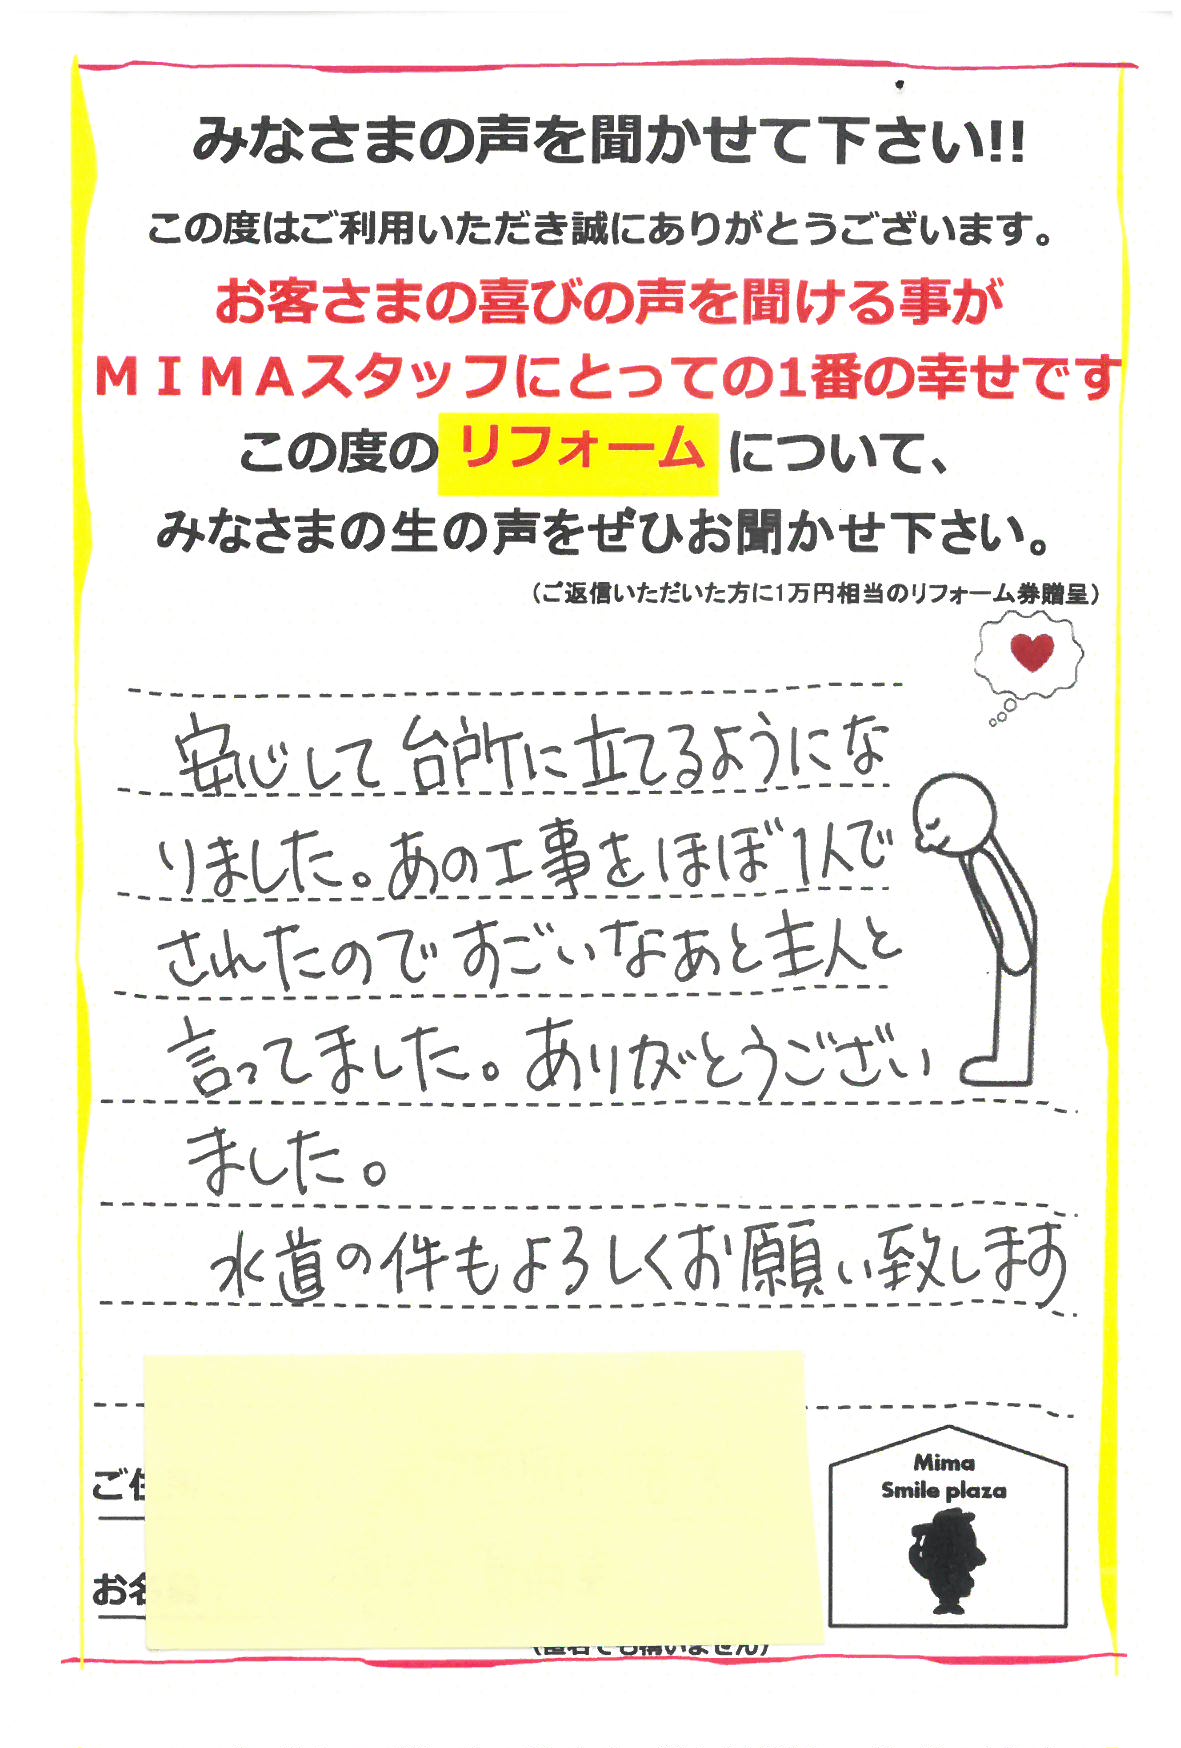 みなさまの声を聞かせて下さい!!
この度はご利用いただき誠にありがとうございます。
お客さまの喜びの声を聞ける事が
ＭＩＭＡスタッフにとっての1番の幸せです
この度の リフォーム について、
みなさまの生の声をぜひお聞かせ下さい。
（ご返信いただいた方に1万円相当のリフォーム券贈呈）
安心して台所に立てるようにな
りました。あの工事をほぼ1人で
されたのですごいなぁと主人と
言ってました。ありがとうござい
ました。
水道の件もよろしくお願い致します
Mima
Smile plaza
ご住
お名
（匿名でも構いません）